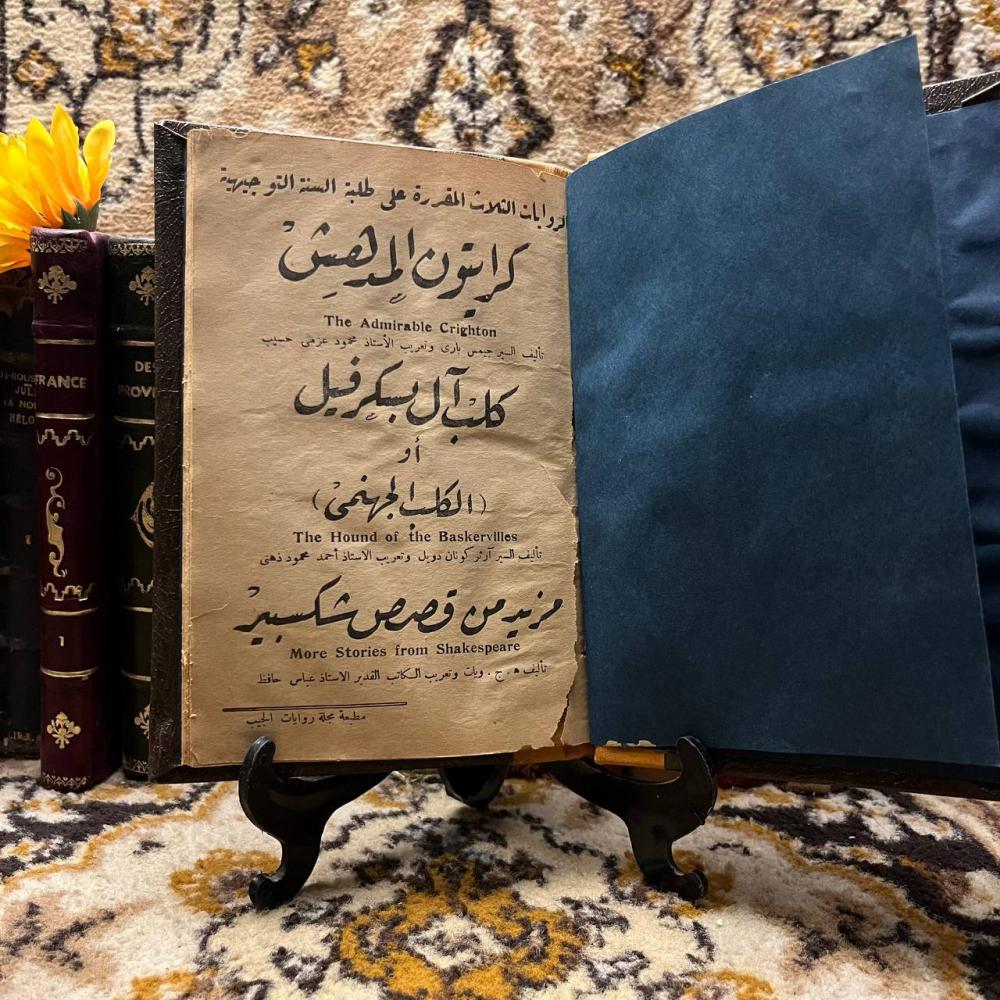 الروايات الثلاث المقررة على طلبة السنة التوجيهية
كرايتون المدهش
The Admirable Crighton
تأليف السير جيمس بارى وتعريب الأستاذ محمود عزمى حسيب
كلب آل بسكرفيل
أو
(الكلب الجهنمى)
The Hound of the Baskervilles
تأليف السير آرثر كونان دويل وتعريب الاستاذ أحمد محمود ذهنى
مزيد من قصص شكسبير
More Stories from Shakespeare
تأليف ه . ج . ويات وتعريب الكاتب القدير الاستاذ عباس حافظ
مطبعة مجلة روايات الجيب
FRANCE
1
DE
PROV